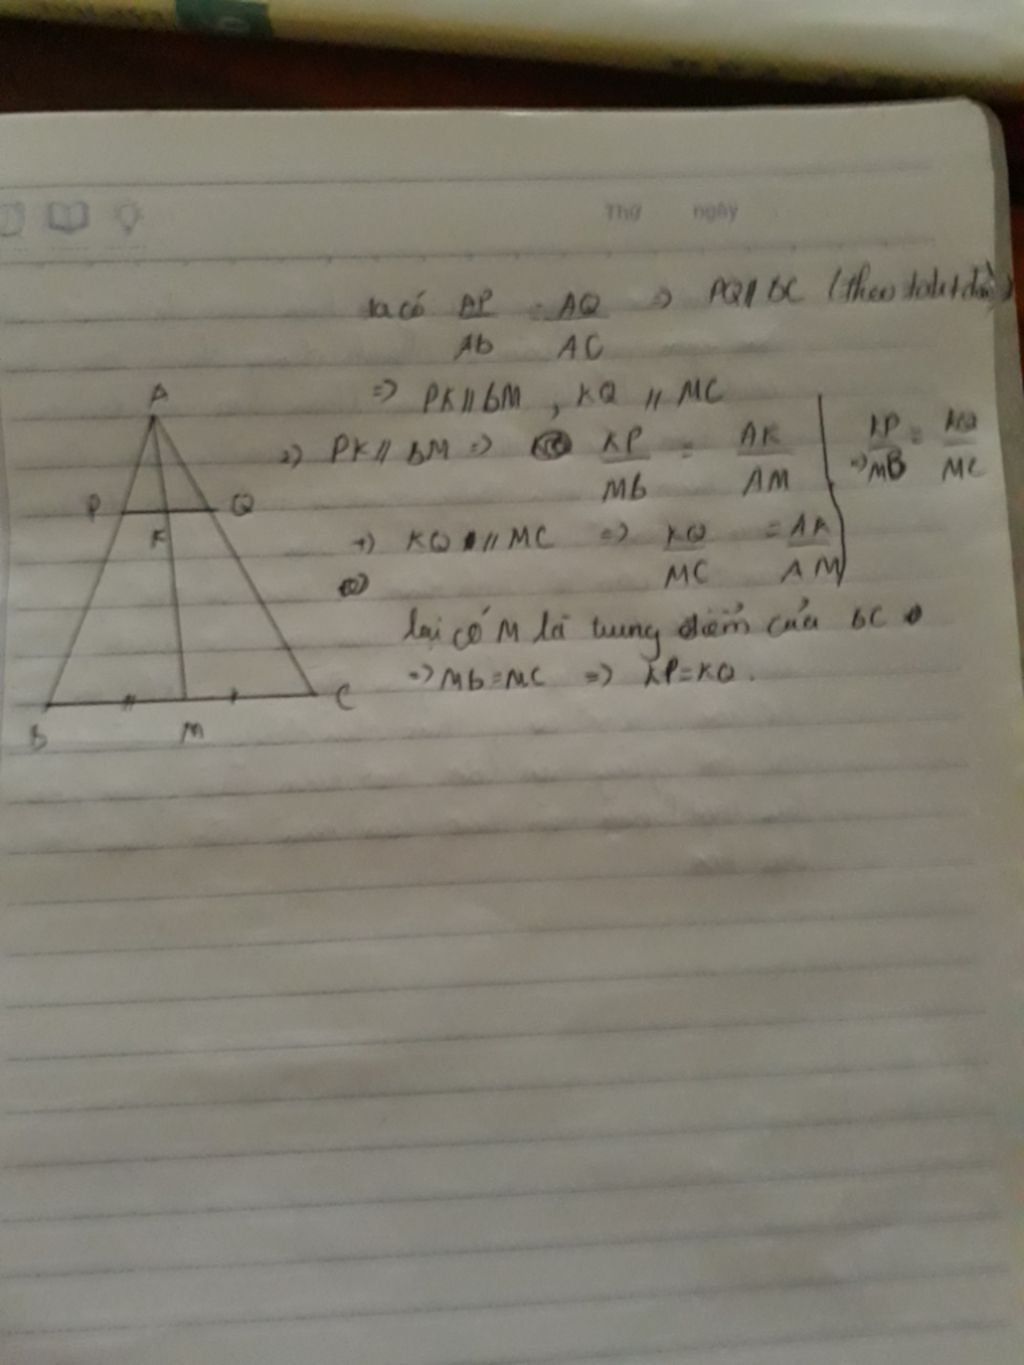 Thứ ngày
ta có AP/AB = AQ/AC => PQ // BC (theo talet đảo)
=> PK // BM , KQ // MC
+) PK // BM => KP/MB = AK/AM
=> KP/MB = KQ/MC
+) KQ // MC => KQ/MC = AK/AM
lại có M là trung điểm của BC
=> MB = MC => KP = KQ.
A
P Q
K
B M C